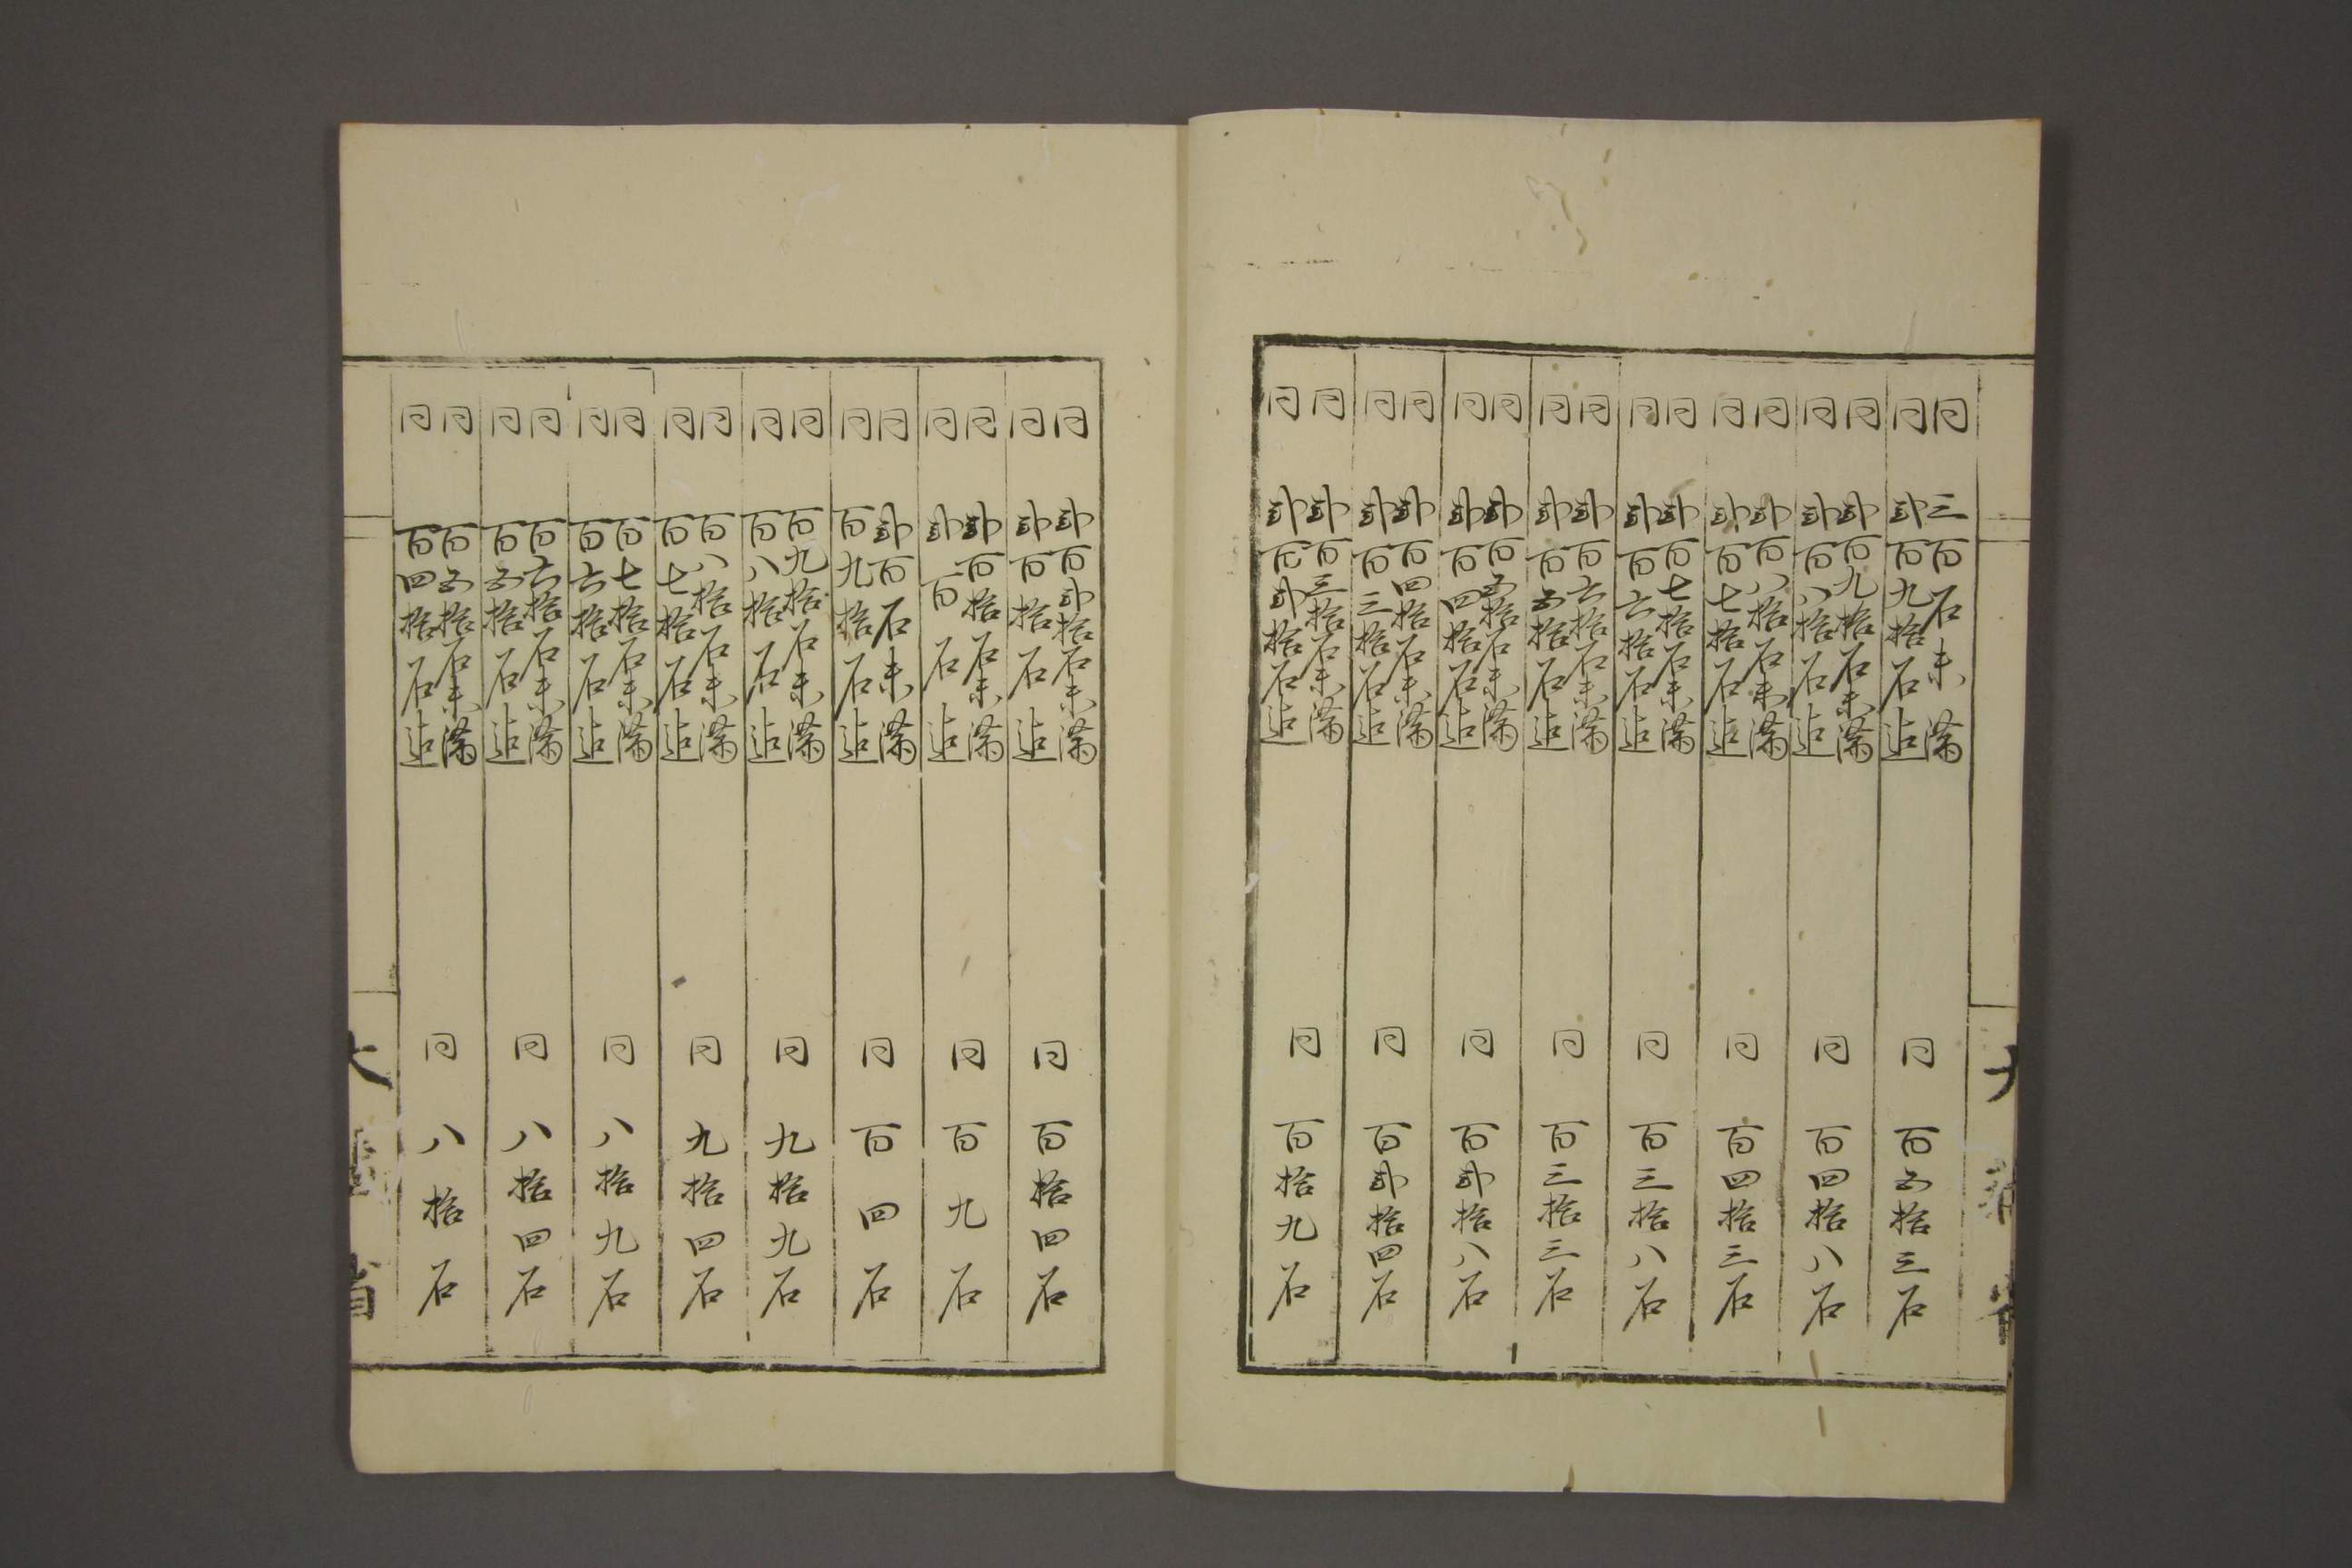 同 三百石未滿
同 弐百九拾石迄
同 百五拾三石
同 弐百九拾石未滿
同 弐百八拾石迄
同 百四拾八石
同 弐百八拾石未滿
同 弐百七拾石迄
同 百四拾三石
同 弐百七拾石未滿
同 弐百六拾石迄
同 百三拾八石
同 弐百六拾石未滿
同 弐百五拾石迄
同 百三拾三石
同 弐百五拾石未滿
同 弐百四拾石迄
同 百弐拾八石
同 弐百四拾石未滿
同 弐百三拾石迄
同 百弐拾四石
同 弐百三拾石未滿
同 弐百弐拾石迄
同 百拾九石
同 弐百弐拾石未滿
同 弐百拾石迄
同 百拾四石
同 弐百拾石未滿
同 弐百石迄
同 百九石
同 弐百石未滿
同 百九拾石迄
同 百四石
同 百九拾石未滿
同 百八拾石迄
同 九拾九石
同 百八拾石未滿
同 百七拾石迄
同 九拾四石
同 百七拾石未滿
同 百六拾石迄
同 八拾九石
同 百六拾石未滿
同 百五拾石迄
同 八拾四石
同 百五拾石未滿
同 百四拾石迄
同 八拾石